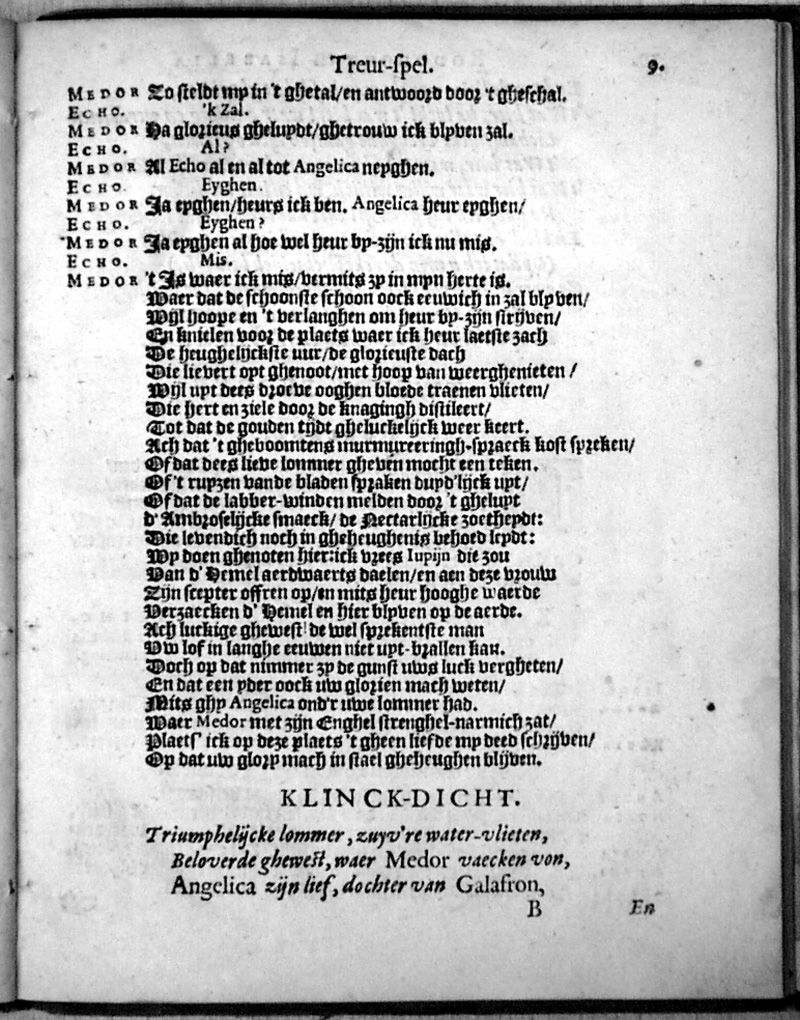 Treur-spel. 9.
MEDOR Zo steldt my in 't ghetal/en antwoord door 't gheschal.
ECHO. 'k Zal.
MEDOR Ha glorieus gheluydt/ghetrouw ick blyven zal.
ECHO. Al?
MEDOR Al Echo al en al tot Angelica neyghen.
ECHO Eyghen.
MEDOR Ja eyghen/heurs ick ben. Angelica heur eyghen/
ECHO. Eyghen?
MEDOR Ja eyghen al hoe wel heur by-zijn ick nu mis.
ECHO. Mis.
MEDOR 't Is waer ick mis/vermits zy in myn herte is.
Waer dat de schoonste schoon oock eeuwich in zal blyven/
Wijl hoope en 't verlanghen om heur by-zijn strijven/
En knielen voor de plaets waer ick heur laetste zach
De heughelijckste uur/de glorieuste dach
Die lievert opt ghenoot/met hoop van weerghenieten /
Wijl upt dees droeve ooghen bloede traenen vlieten/
Die hert en ziele door de knagingh distileert/
Tot dat de gouden tijdt gheluckelijck weer keert.
Ach dat 't gheboomtens murmureeringh-spraeck kost spreken/
Of dat dees lieve lommer gheven mocht een teken.
Of 't ruyzen vande bladen spraken duyd'lijck upt/
Of dat de labber-winden melden door 't gheluyt
d' Ambroselijcke smaeck/ de Nectarlijcke zoetheydt:
Die levendich noch in gheheughenis behoed leydt:
Wy doen ghenoten hier:ick vrees Iupijn die zou
Van d' Hemel aerdwaerts daelen/en aen deze vrouw
Zijn scepter offren op/en mits heur hooghe waerde
Verzaecken d' Hemel en hier blyven op de aerde.
Ach luckige ghewest! de wel sprekentste man
Uw lof in langhe eeuwen niet upt-brallen kan.
Doch op dat nimmer zy de gunst uws luck vergheten/
En dat een yder oock uw glorien mach weten/
Mits ghy Angelica ond'r uwe lommer had.
Waer Medor met zijn Enghel strenghel-narmich zat/
Plaets' ick op deze plaets 't gheen liefde my deed schrijven/
Op dat uw glory mach in stael gheheughen blijven.
KLINCK-DICHT.
Triumphelijcke lommer, zuyv're water-vlieten,
Beloverde ghewest, waer Medor vaecken von,
Angelica zijn lief, dochter van Galafron,
B En